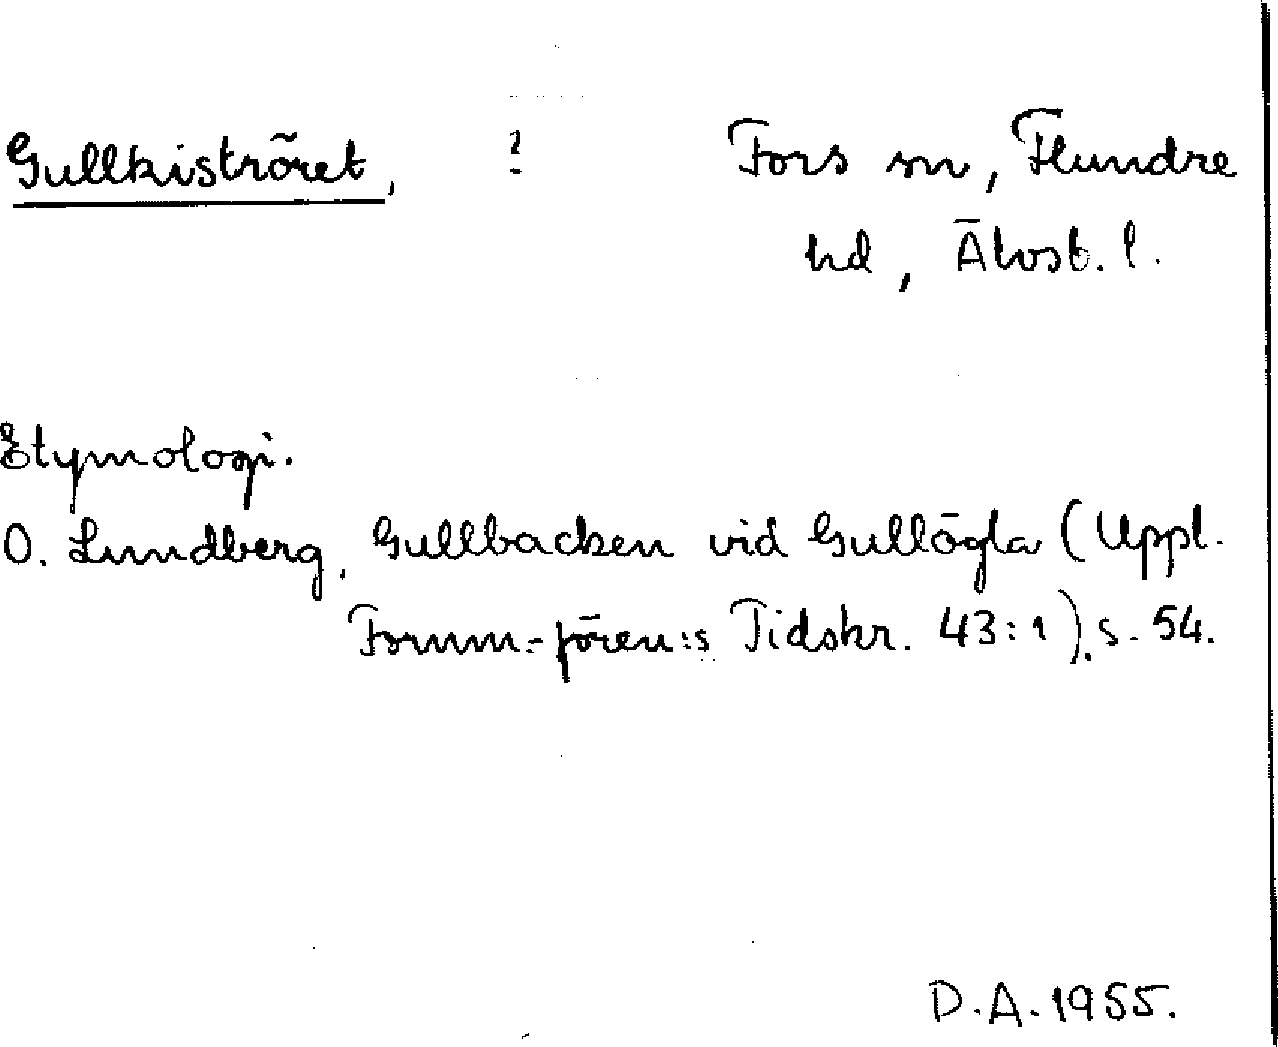 Gullkiströret, ? Fors sn, Flundre
hd, Älvsb. l.
Etymologi.
O. Lundberg, Gullbacken vid Gullögla (Uppl.
Fornm.-fören:s Tidskr. 43:1). s. 54.
D.A. 1955.